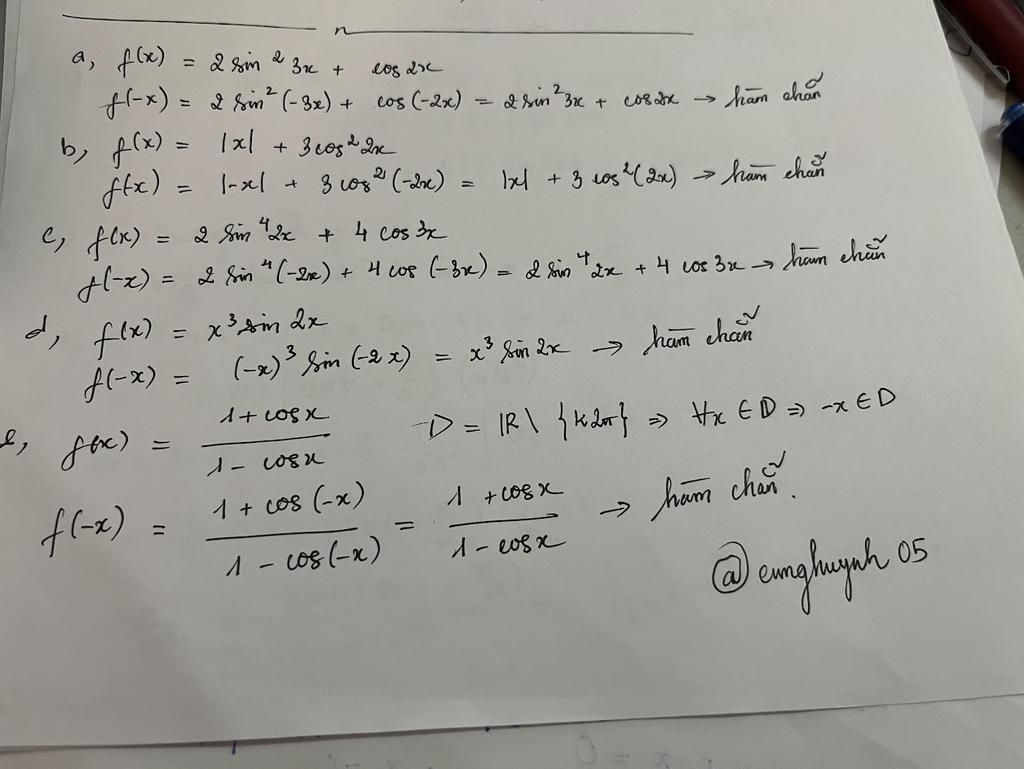 a, f(x) = 2 sin² 3x + cos 2x
f(-x) = 2 sin² (-3x) + cos (-2x) = 2 sin² 3x + cos 2x → hàm chẵn
b, f(x) = |x| + 3 cos² 2x
f(-x) = |-x| + 3 cos² (-2x) = |x| + 3 cos² (2x) → hàm chẵn
c, f(x) = 2 sin⁴ 2x + 4 cos 3x
f(-x) = 2 sin⁴ (-2x) + 4 cos (-3x) = 2 sin⁴ 2x + 4 cos 3x → hàm chẵn
d, f(x) = x³ sin 2x
f(-x) = (-x)³ sin (-2x) = x³ sin 2x → hàm chẵn
e, f(x) = (1 + cos x)/(1 - cos x) D = ℝ \ {k2π} ⇒ ∀x ∈ D ⇒ -x ∈ D
f(-x) = (1 + cos (-x))/(1 - cos (-x)) = (1 + cos x)/(1 - cos x) → hàm chẵn.